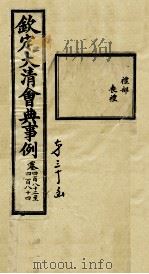 禮部
喪禮
三十
欽定大清會典事例
卷四百八十二至
四百八十四
mtoou.info